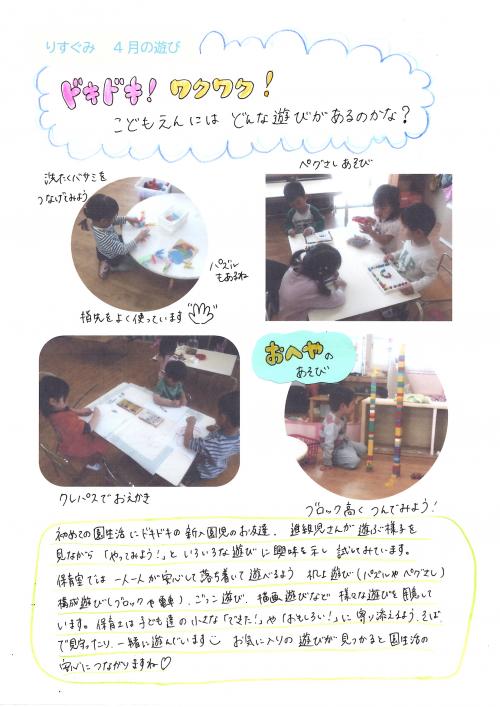 りすぐみ 4月の遊び
ドキドキ! ワクワク!
こどもえんには どんな遊びがあるのかな?
ペグさしあそび
洗たくバサミを
つなげてみよう
パズル
もあるね
指先をよく使っています
おへやの
あそび
クレパスでおえかき
ブロック高くつんでみよう!
初めての園生活にドキドキの新入園児のお友達、進級児さんが遊ぶ様子を
見ながら「やってみよう!」といろいろな遊びに興味を示し試してみています。
保育室では一人一人が安心して落ち着いて遊べるよう 机上遊び(パズルやペグさし)
構成遊び(ブロックや電車)、ごっこ遊び、描画遊びなど 様々な遊びを用意して
います。保育士は子ども達の小さな「できた!」や「おもしろい!」に寄り添えるよう、そば
で見守ったり、一緒に遊んでいます お気に入りの遊びが見つかると園生活の
安心につながりますね♡